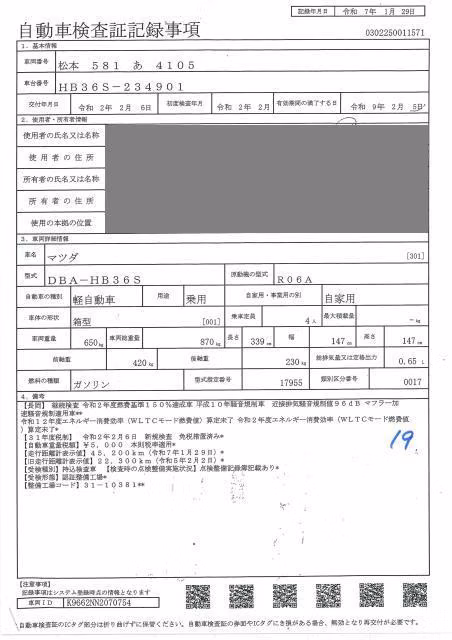 記録年月日 令和 7年 1月 29日
自動車検査証記録事項
0302250011571
1. 基本情報
車両番号 松本 581 あ 4105
車台番号 HB36S-234901
交付年月日 令和 2年 2月 6日 初度検査年月 令和 2年 2月 有効期間の満了する日 令和 9年 2月 5日
2. 使用者・所有者情報
使用者の氏名又は名称
使用者の住所
所有者の氏名又は名称
所有者の住所
使用の本拠の位置
3. 車両詳細情報
車名 マツダ [301]
型式 DBA-HB36S 原動機の型式 R06A
自動車の種別 軽自動車 用途 乗用 自家用・事業用の別 自家用
車体の形状 箱型 [001] 乗車定員 4人 最大積載量 -kg
車両重量 650kg 車両総重量 870kg 長さ 339cm 幅 147cm 高さ 147cm
前軸重 420kg 後軸重 230kg 総排気量又は定格出力 0.65L
燃料の種類 ガソリン 型式指定番号 17955 類別区分番号 0017
4. 備考
【長岡】 継続検査 令和2年度燃費基準150%達成車 平成10年騒音規制車 近接排気騒音規制値96dB マフラー加
速騒音規制適用車**
令和12年度エネルギー消費効率(WLTCモード燃費値)算定未了 令和2年度エネルギー消費効率(WLTCモード燃費値
)算定未了*
【31年度税制】 令和2年2月6日 新規検査 免税措置済み*
【自動車重量税額】¥5,000 本則税率適用*
【走行距離計表示値】45,200km(令和7年1月29日)*
【旧走行距離計表示値】22,300km(令和5年2月2日)*
【受検種別】持込検査車 【検査時の点検整備実施状況】点検整備記録簿記載あり*
【受検形態】認証整備工場*
【整備工場コード】31-10381**
19
【注意事項】
記録事項はシステム登録時点の情報となります
車両ID K9662NN2070754
自動車検査証のICタグ部分は折り曲げずに保管ください。自動車検査証の券面やICタグにき損がある場合、無効となり再交付が必要です。